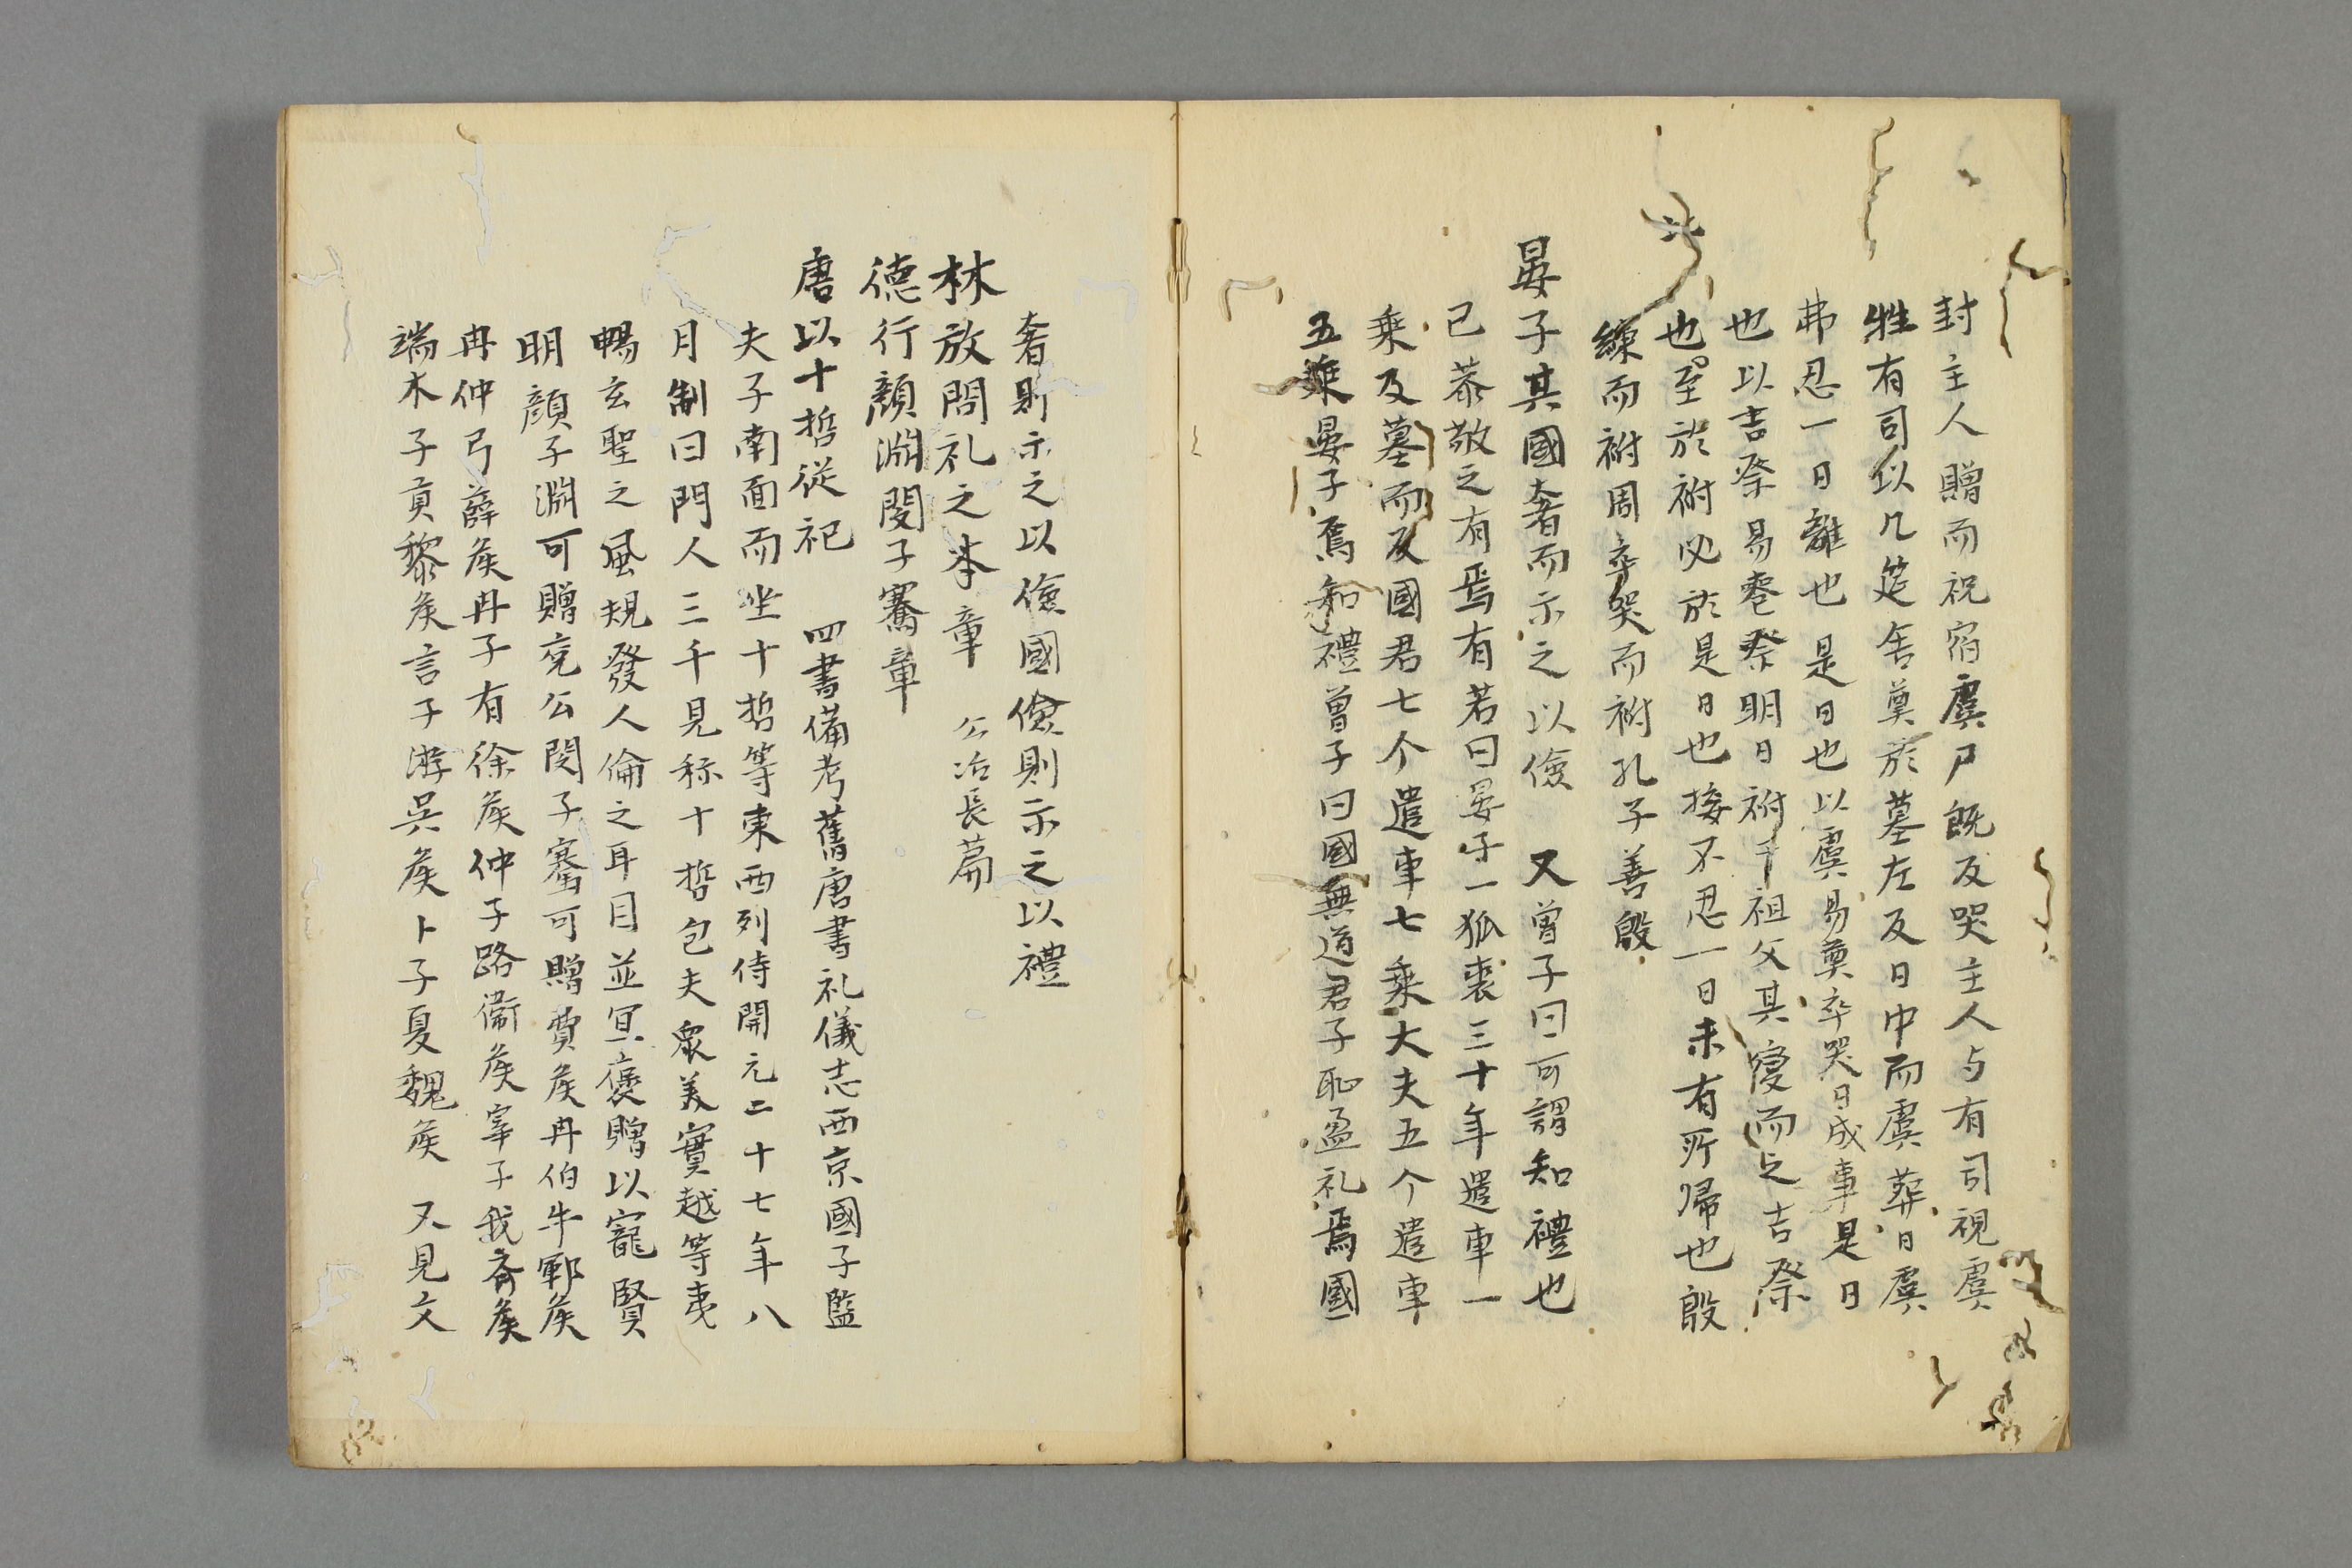 封主人贈而祝宿虞尸既反哭主人与有司視虞
牲有司以几筵舎奠於墓左反日中而虞葬日虞
弗忍一日離也是日也以虞易奠卒哭曰成事是日
也以吉祭易䘮祭明日祔于祖父其変而之吉祭
也至於祔必於是日也接不忍一日未有所帰也殷
練而祔周卒哭而祔孔子善殷
晏子其國奢而示之以儉 又曽子曰可謂知禮也
已恭敬之有焉有若曰晏子一狐裘三十年遣車一
乗及墓而反國君七个遣車七乗大夫五个遣車
五乗晏子焉知禮曽子曰國無道君子恥盈礼焉國
奢則示之以儉國儉則示之以禮
林放問礼之本章 公冶長篇
德行顔淵閔子騫章
唐以十哲従祀 四書備考舊唐書礼儀志西京國子監
夫子南面而坐十哲等東西列侍開元二十七年八
月制曰門人三千見称十哲包夫衆美實越等夷
暢玄聖之風規發人倫之耳目並冝褒贈以寵賢
明顔子淵可贈兖公閔子騫可贈費侯冉伯牛鄆侯
冉仲弓薛侯冉子有徐侯仲子路衞侯宰子我斉侯
端木子貢黎侯言子游呉侯卜子夏魏侯 又見文